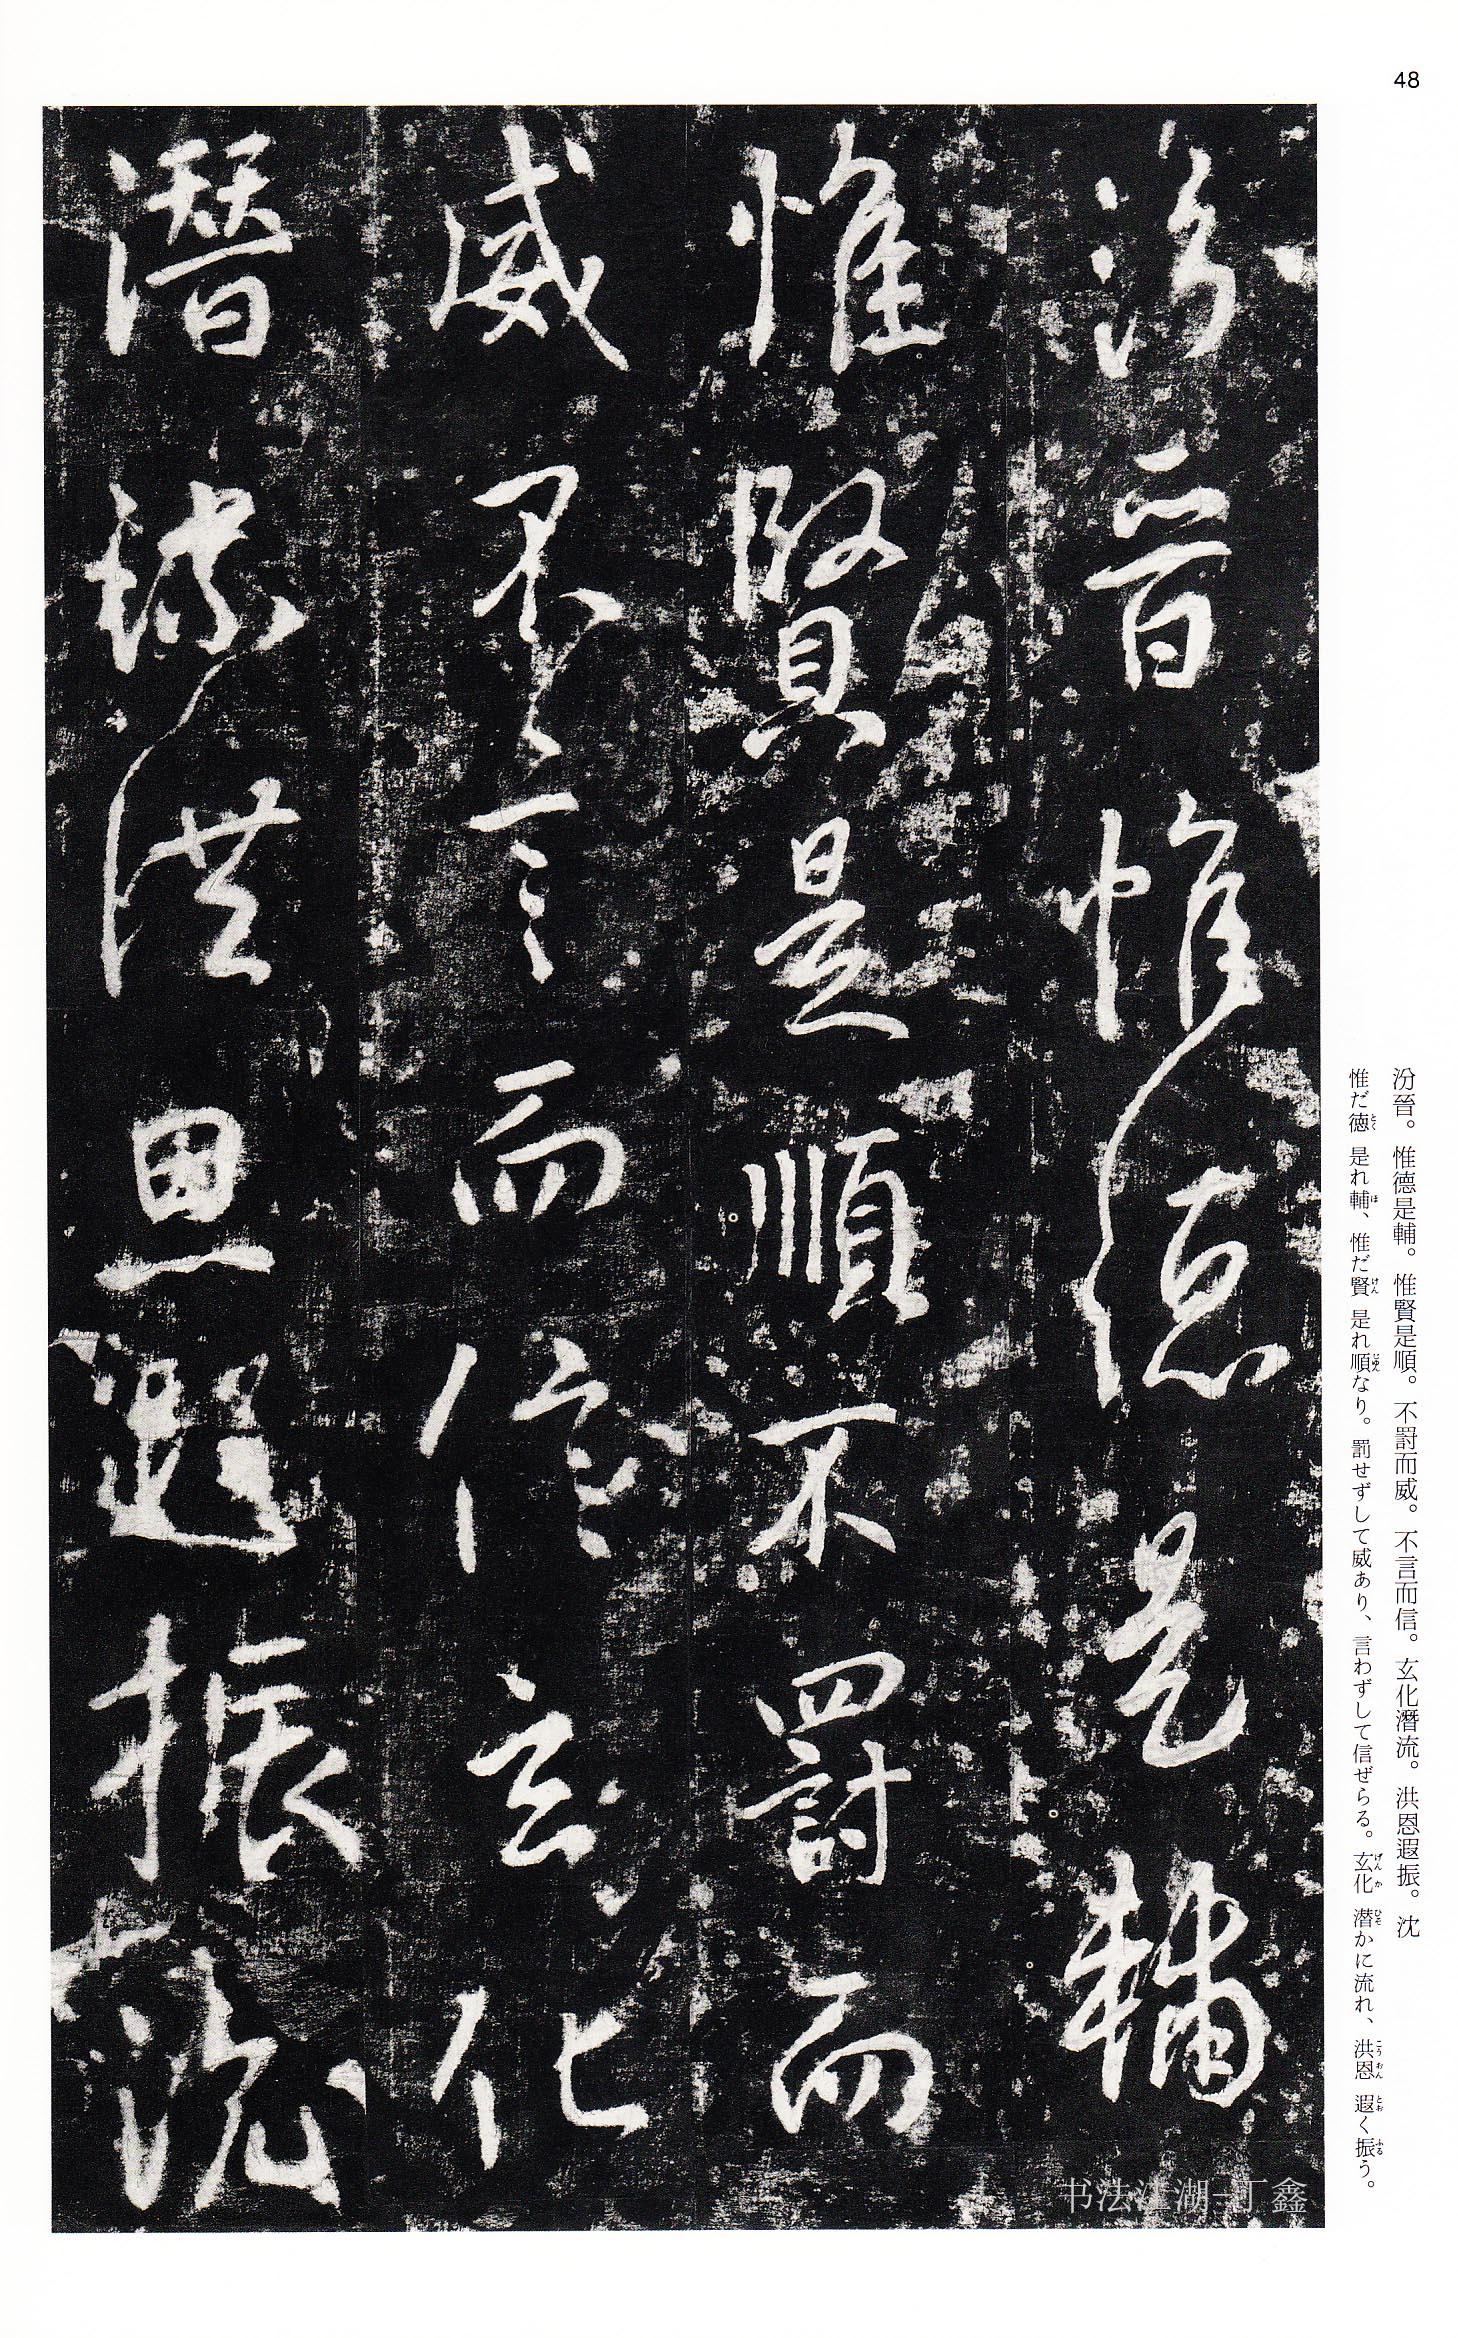 48
汾晉惟德是輔
惟賢是順不罰而
威不言而信玄化
潛流洪恩遐振沈
汾晉。惟德是輔。惟賢是順。不罸而威。不言而信。玄化潛流。洪恩遐振。沈
惟だ徳是れ輔、惟だ賢是れ順なり。罰せずして威あり、言わずして信ぜらる。玄化潜かに流れ、洪恩遐く振う。
とく
ほ
けん
じゅん
げんか
ひそ
こうおん
とお
ふる
书法江湖-丁鑫